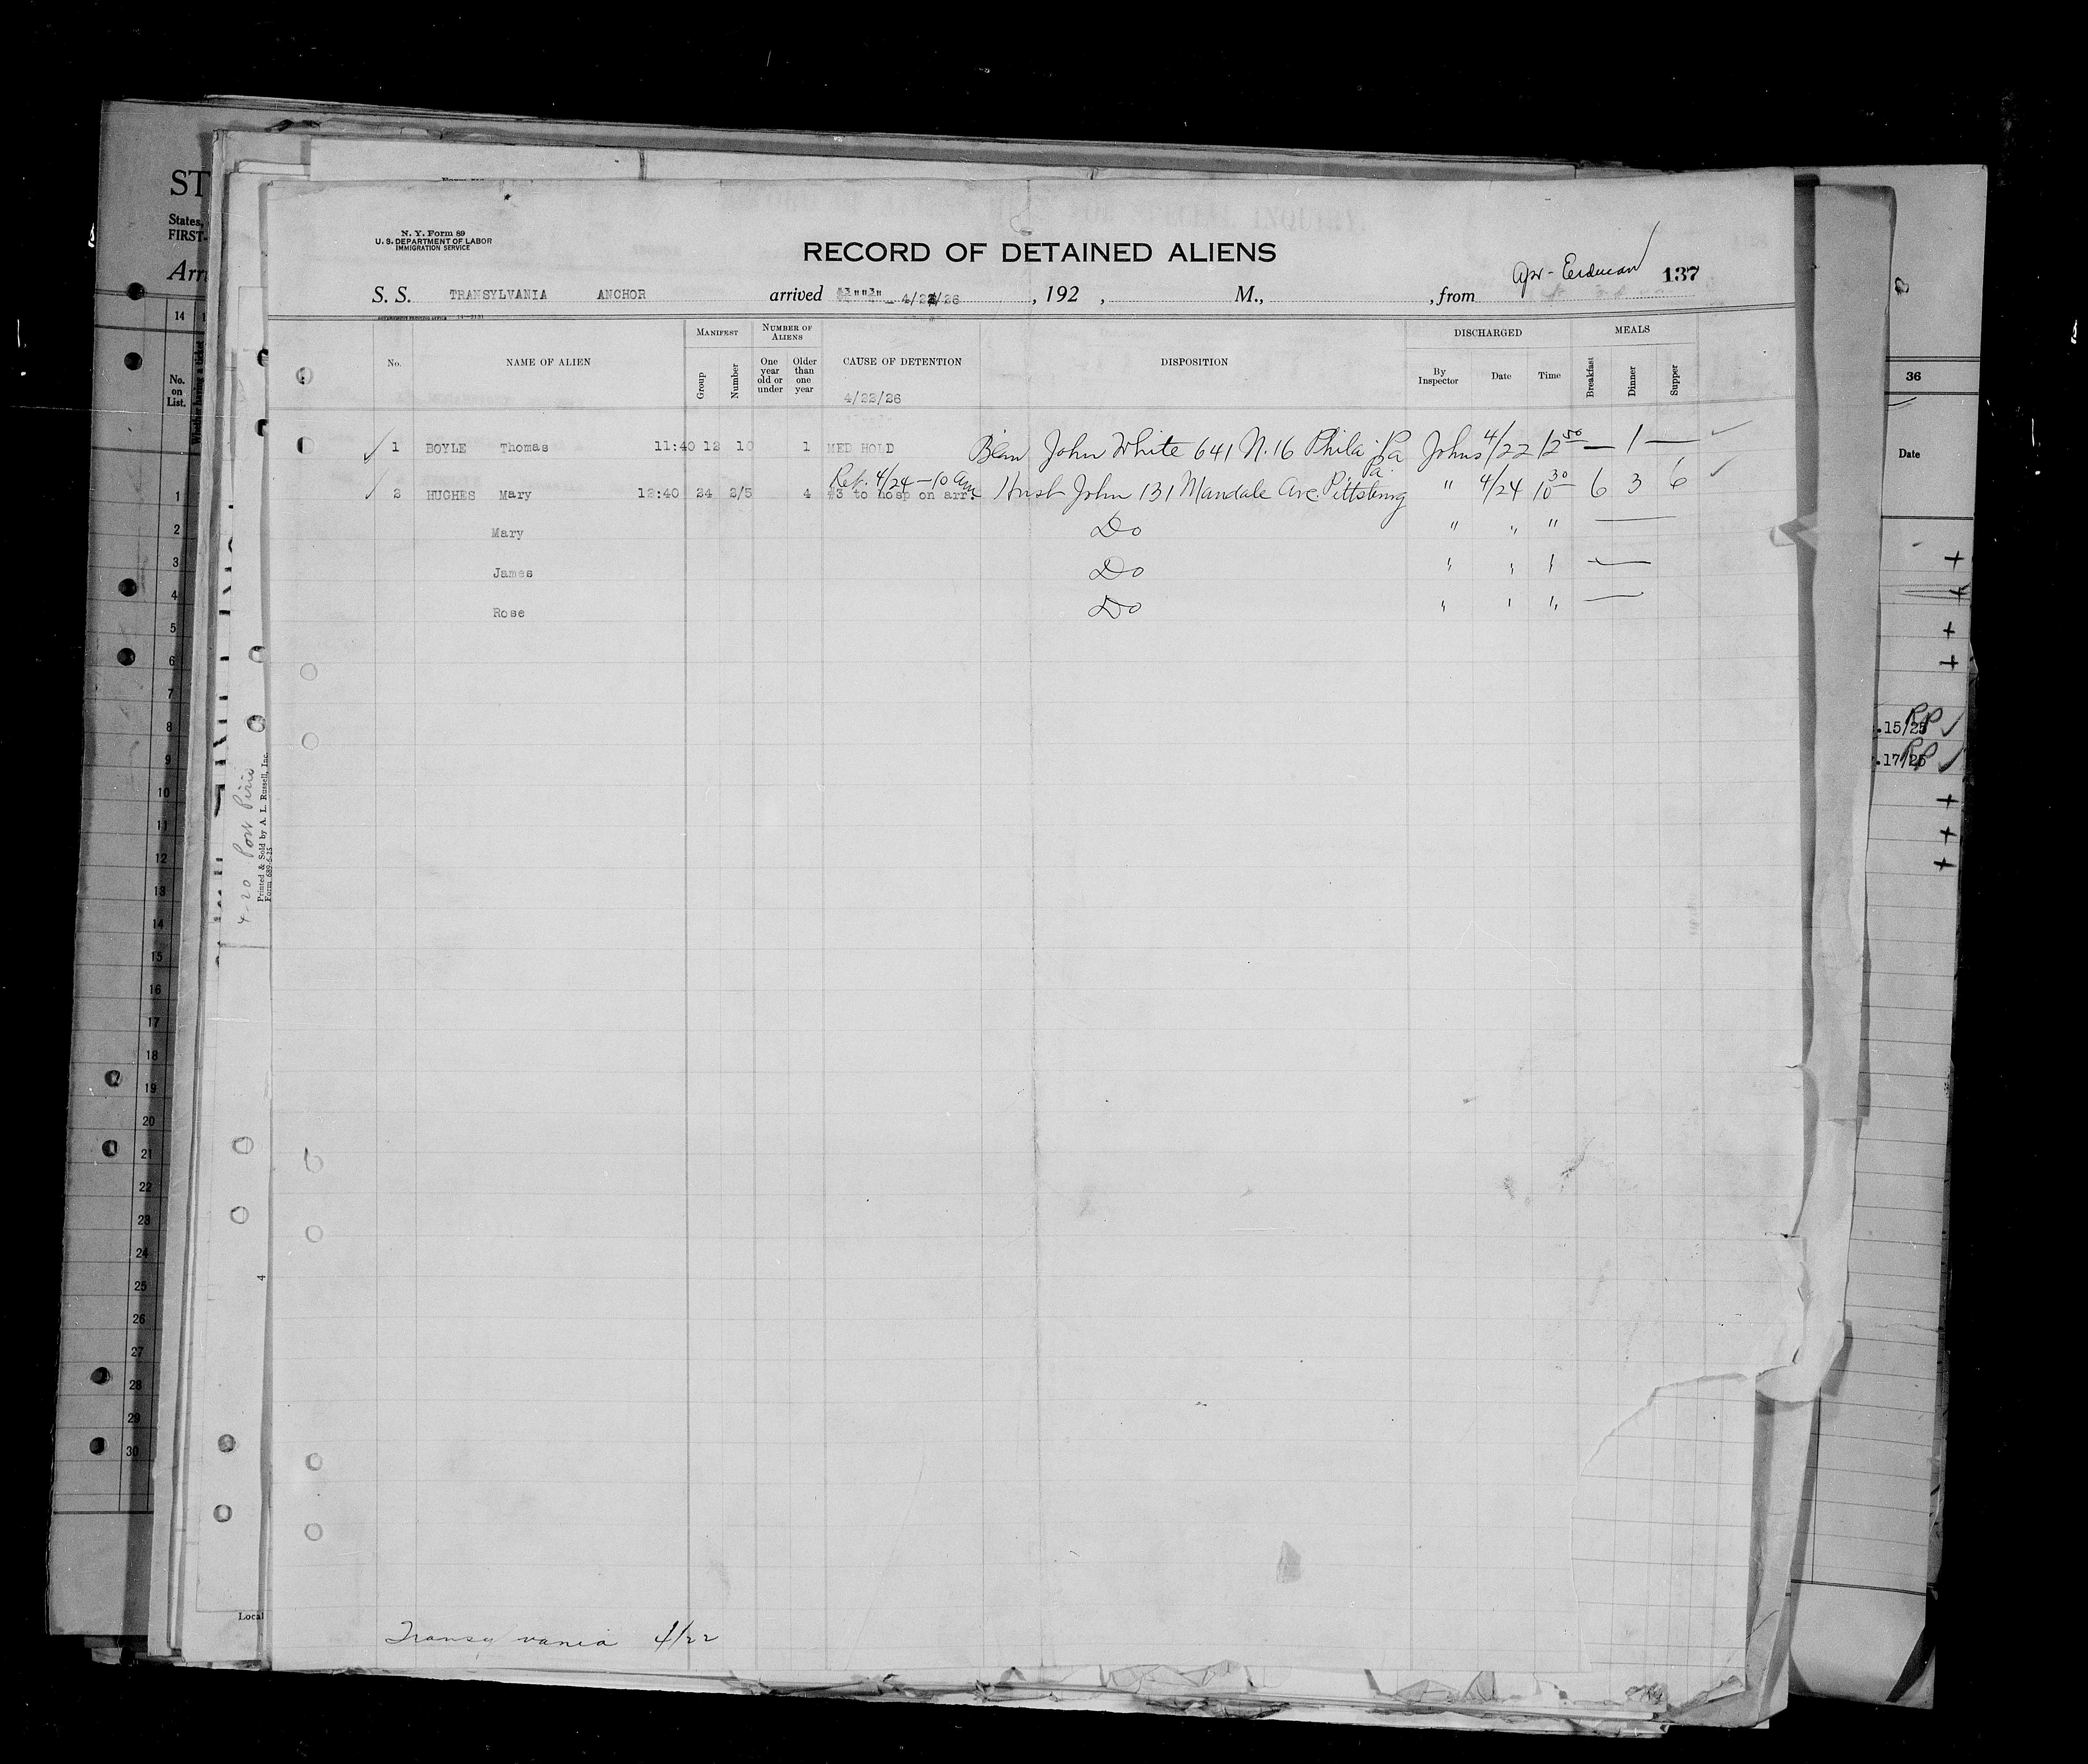 N. Y. Form 89
U. S. DEPARTMENT OF LABOR
IMMIGRATION SERVICE
RECORD OF DETAINED ALIENS
137
S. S. TRANSYLVANIA ANCHOR arrived 4/22/26, 192 , M., , from
No. NAME OF ALIEN MANIFEST Group Number NUMBER OF ALIENS One year old or under Older than one year CAUSE OF DETENTION DISPOSITION DISCHARGED By Inspector Date Time MEALS Breakfast Dinner Supper
4/22/26
1 BOYLE Thomas 11:40 12 10 1 MED HOLD John White 641 N. 16 Phila Pa Johns 4/22 12 50 — 1 —
4/24 - 10 Am
2 HUGHES Mary 12:40 24 2/5 4 #3 to hosp on arr. Husb John 131 Mandale Ave. Pittsburg Pa. " 4/24 10 30 6 3 6
Mary Do " " "
James Do " " "
Rose Do " " "
Transylvania 4/22
ST
States,
FIRST-
Arri
14
No. on List.
Whether having a ticket
1
2
3
4
5
6
7
8
9
10
11
12
13
14
15
16
17
18
19
20
21
22
23
24
25
26
27
28
29
30
Printed & Sold by A. L. Russell, Inc.
Form 689-6-25
4
Local
36
Date
.15/25 RP
.17/25 RP